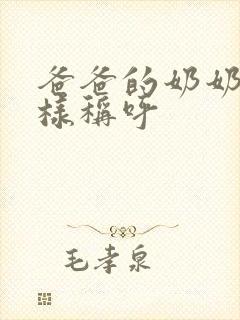 爸爸的奶奶
样稱呼
毛孝泉